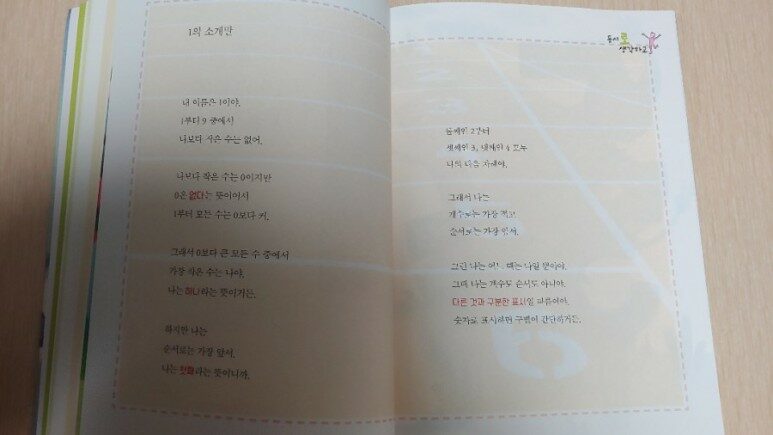 1의 소개말
내 이름은 1이야.
1부터 9 중에서
나보다 작은 수는 없어.
나보다 작은 수는 0이지만
0은 없다는 뜻이어서
1부터 모든 수는 0보다 커.
그래서 0보다 큰 모든 수 중에서
가장 작은 수는 나야.
나는 하나라는 뜻이거든.
하지만 나는
순서로는 가장 앞서.
나는 첫째라는 뜻이니까.
동시로
생각하고
둘째인 2부터
셋째인 3, 넷째인 4 모두
나의 다음 차례야.
그래서 나는
개수로는 가장 적고
순서로는 가장 앞서.
그런 나는 어느 때는 나일 뿐이야.
그때 나는 개수도 순서도 아니야.
다른 것과 구분한 표시일 따름이야.
숫자로 표시하면 구별이 간단하거든.